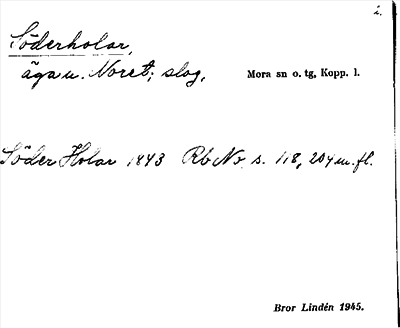 2.
Söderholar,
ägam. Noret; slog. Mora sn o. tg, Kopp. l.
Söder Holar 1843 Rb Nr. s. 118, 204 m. fl.
Bror Lindén 1945.